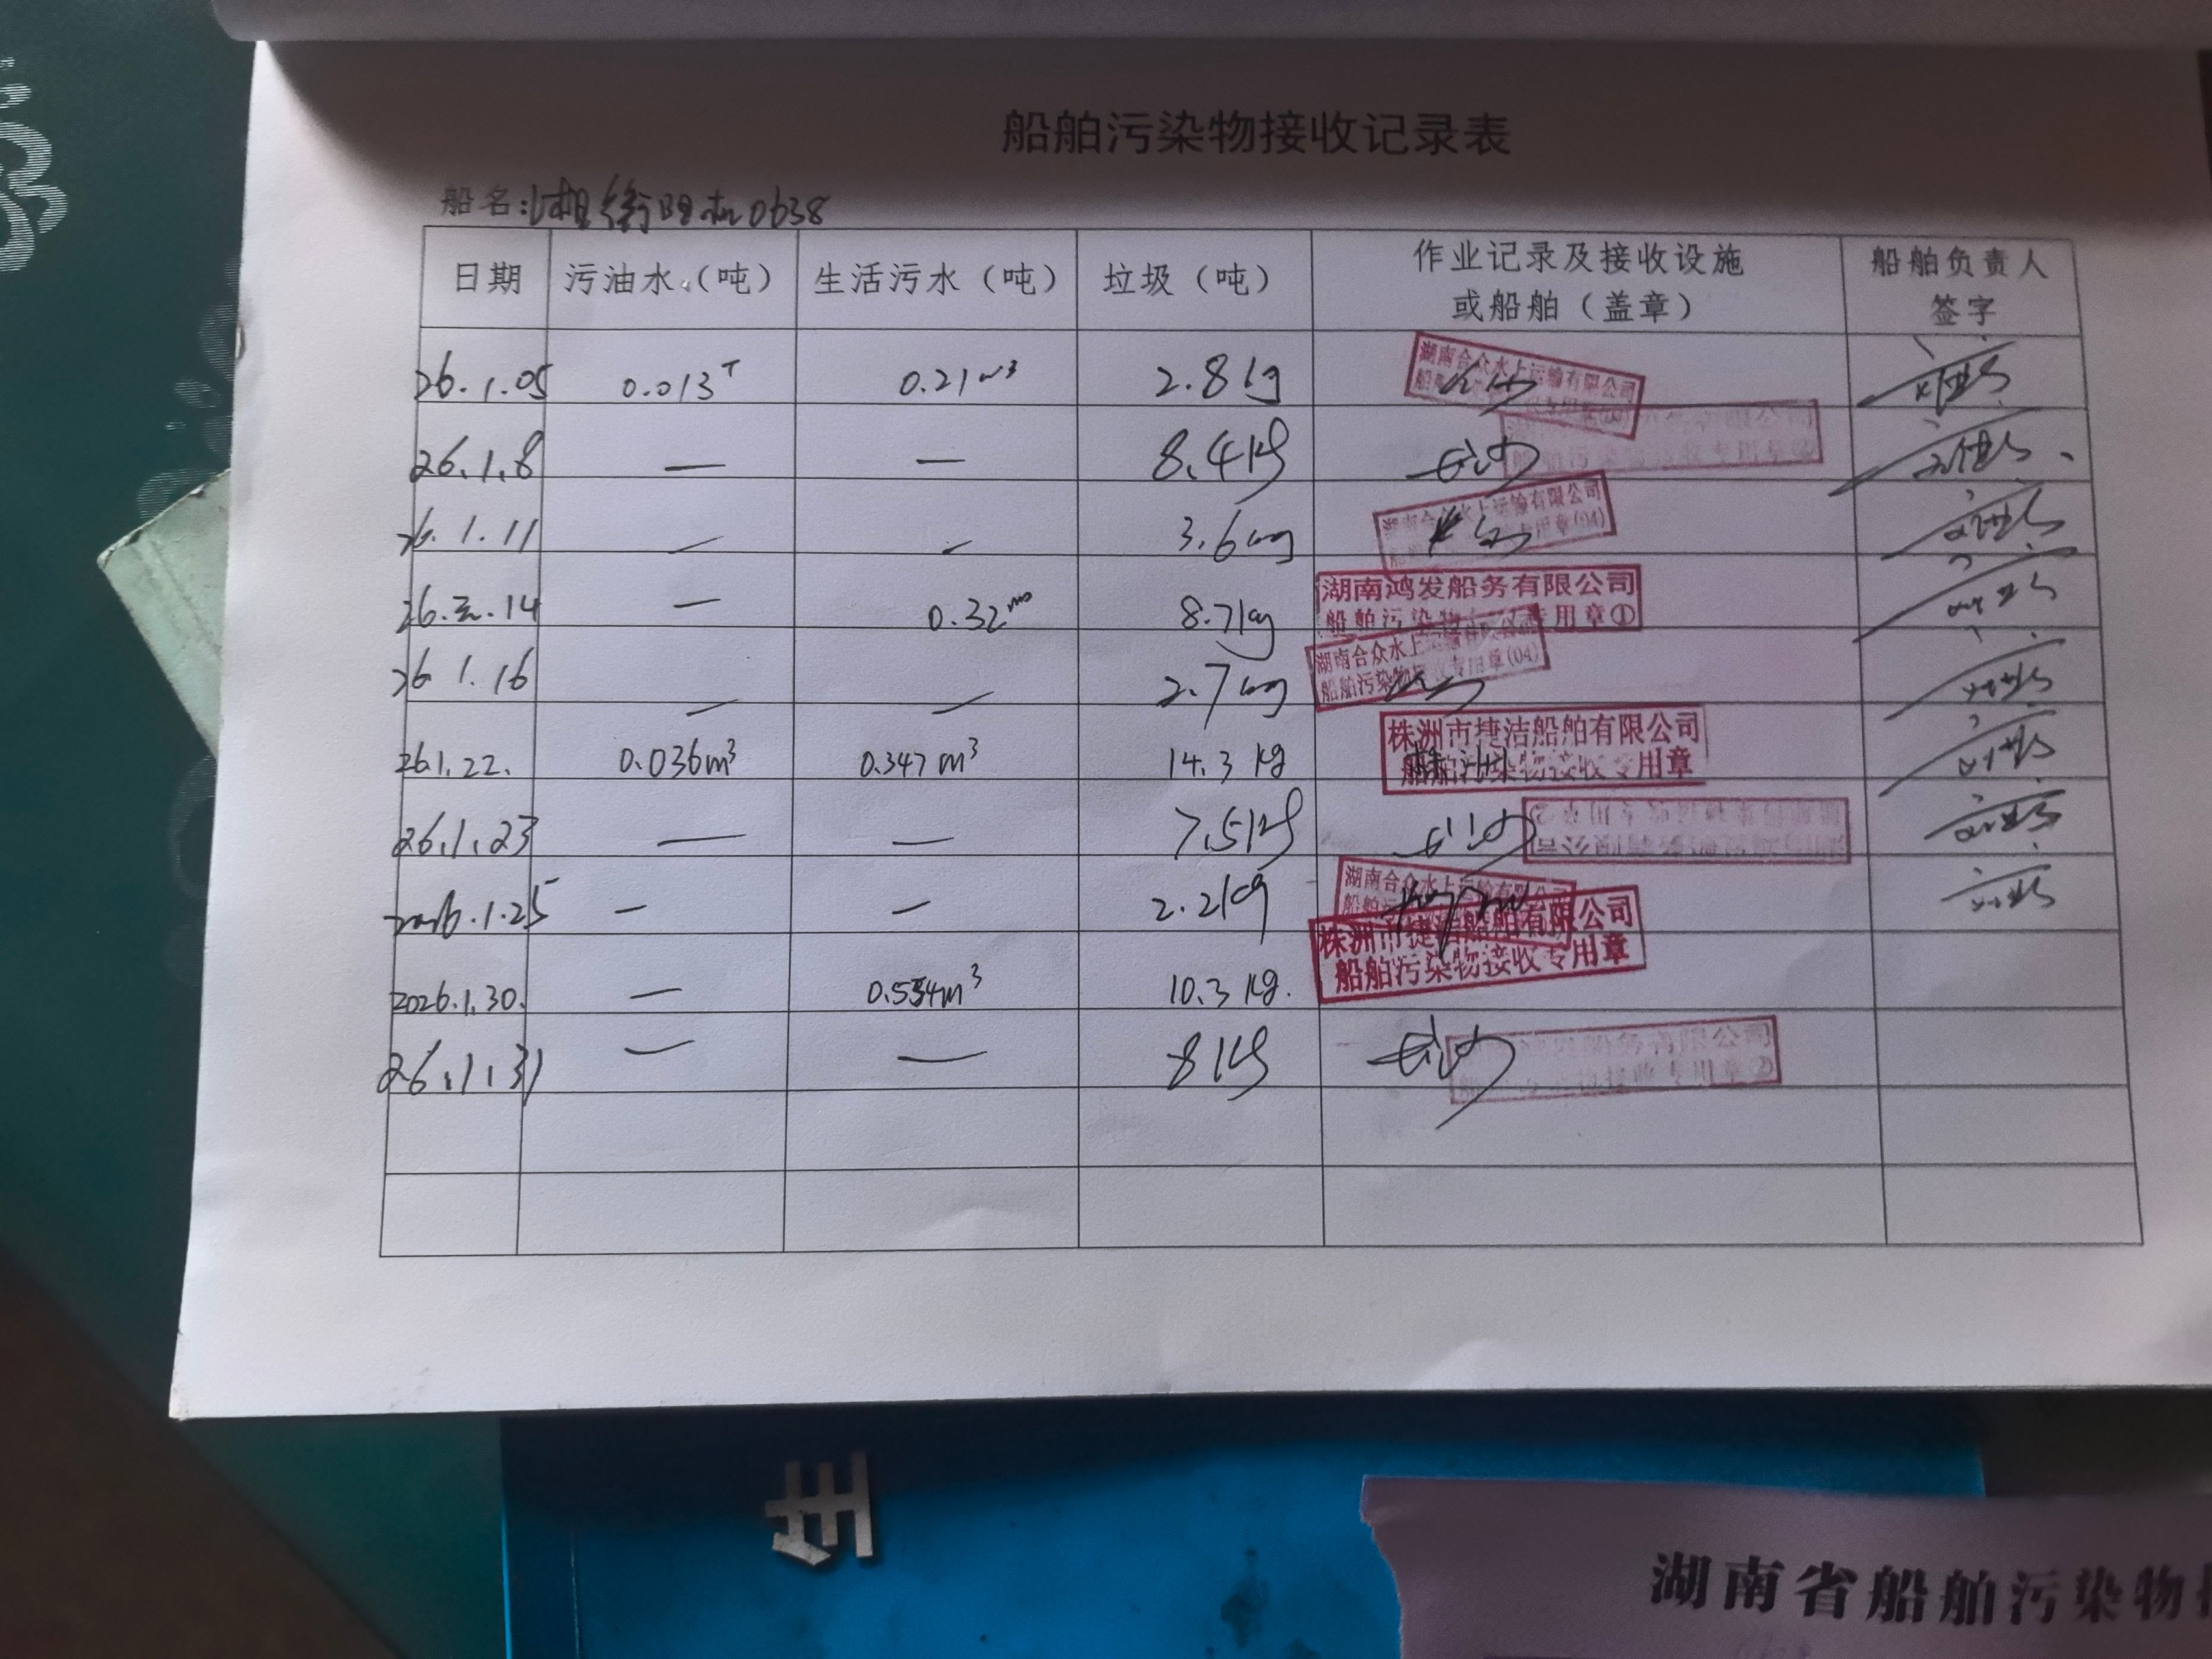 船舶污染物接收记录表
船名:湘衡阳机0638
日期 污油水（吨） 生活污水（吨） 垃圾（吨） 作业记录及接收设施或船舶（盖章） 船舶负责人签字
26.1.05 0.013T 0.21m³ 2.8kg 湖南合众水上运输有限公司
26.1.8 — — 8.4kg 船舶污染物接收专用章
26.1.11 — — 3.6kg 湖南合众水上运输有限公司 专用章(04)
26.元.14 — 0.32m³ 8.7kg 湖南鸿发船务有限公司 船舶污染物 专用章①
26.1.16 — — 2.7kg 湖南合众水上运输有限公司 船舶污染物接收专用章(04)
26.1.22. 0.036m³ 0.347m³ 14.3kg 株洲市捷洁船舶有限公司 船舶污染物接收专用章
26.1.23 — — 7.5kg
2026.1.25 — — 2.2kg 湖南合众水上运输有限公司
2026.1.30. — 0.554m³ 10.3kg. 株洲市捷洁船舶有限公司 船舶污染物接收专用章
26.1.31 — — 8kg 船务有限公司 接收专用章②
生
湖南省船舶污染物